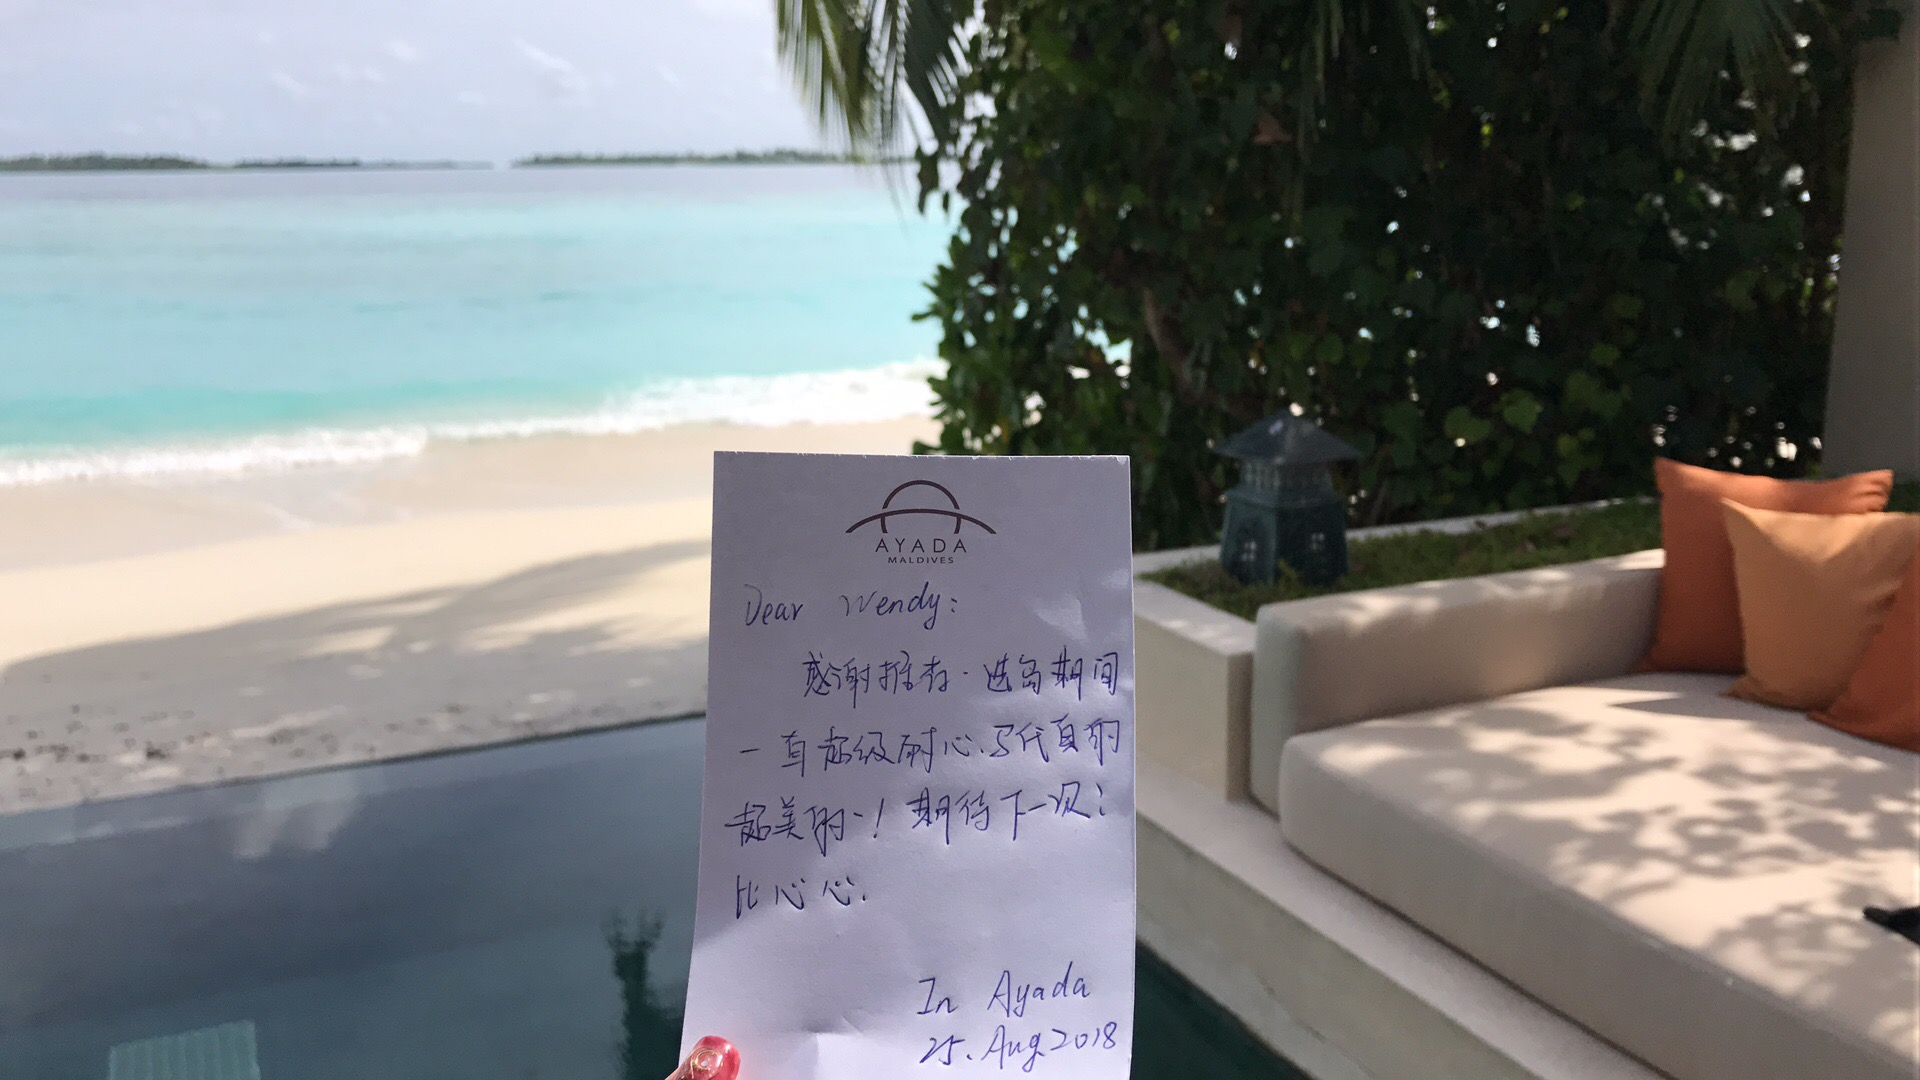 AYADA
MALDIVES
Dear Wendy:
感谢推荐. 选岛期间
一直超级耐心. 马代真的
超美的~! 期待下一次!
比心心.
In Ayada
25. Aug. 2018